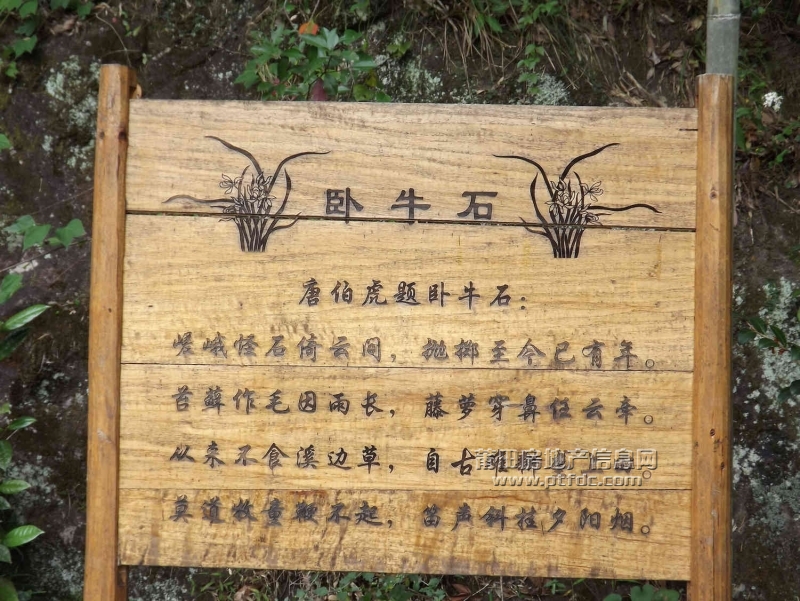 卧牛石
唐伯虎题卧牛石：
嵯峨怪石倚云间，抛掷至今已有年。
苔藓作毛因雨长，藤萝穿鼻任云牵。
从来不食溪边草，自古难耕
莫道牧童鞭不起，笛声斜挂夕阳烟。
莆田房地产信息网
www.ptfdc.com